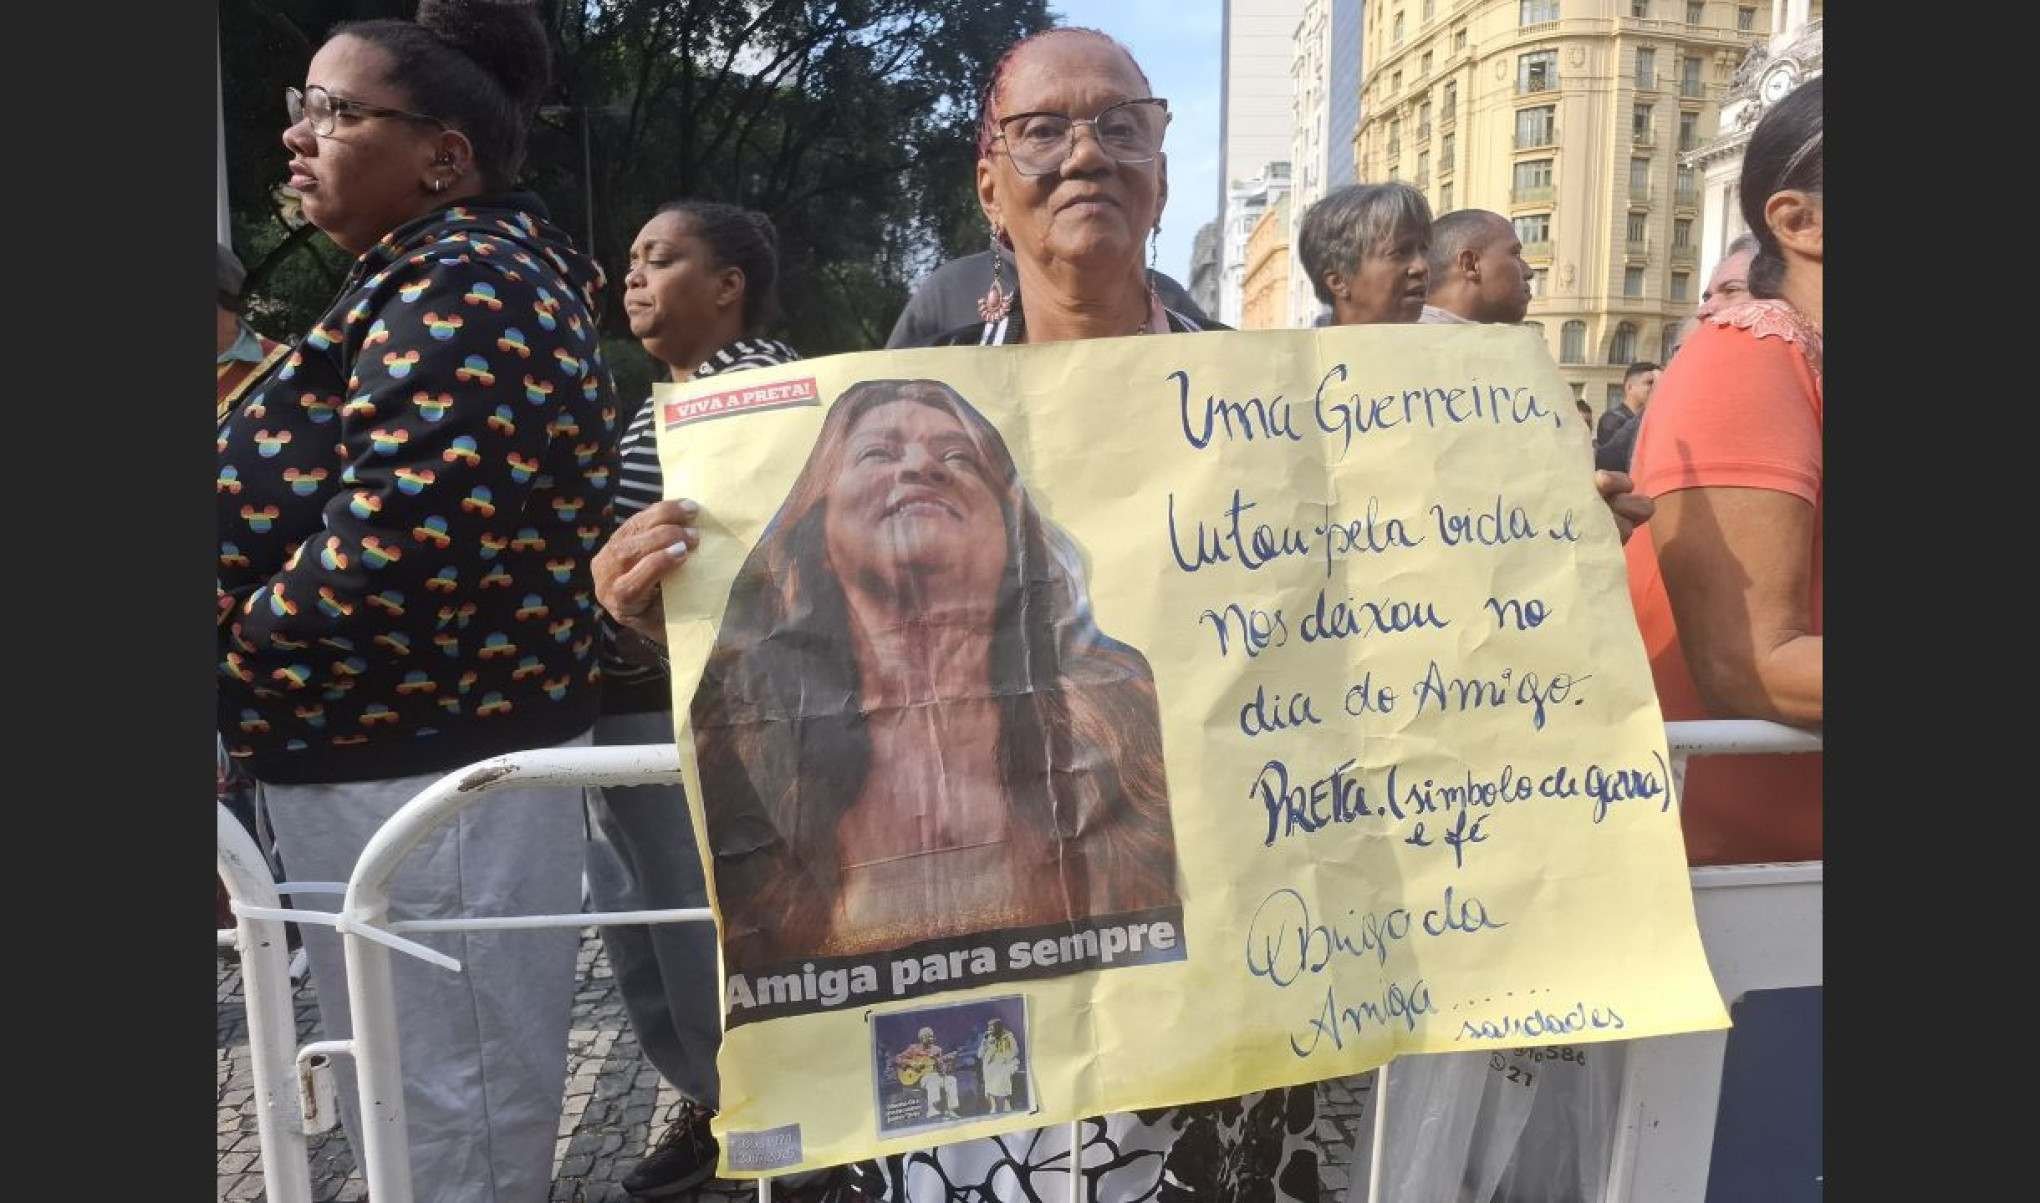 VIVA A PRETA!
Uma Guerreira,
lutou pela vida e
nos deixou no
dia do Amigo.
PRETA. (simbolo de garra)
e fé
Obrigada
Amiga ......
saudades
Amiga para sempre